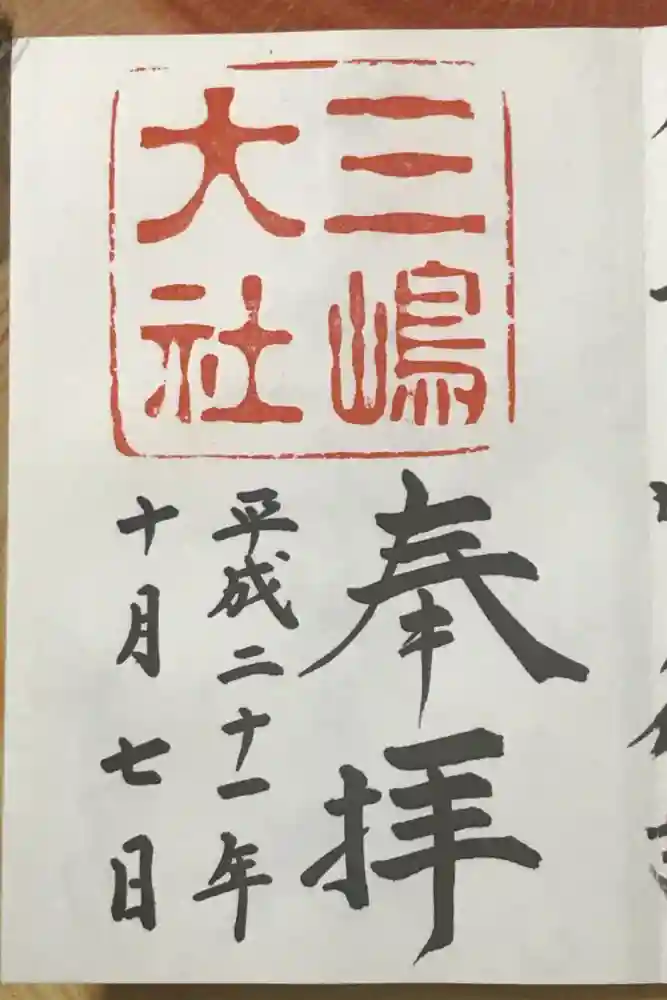 三嶋
大社
奉拝
平成二十一年
十月七日